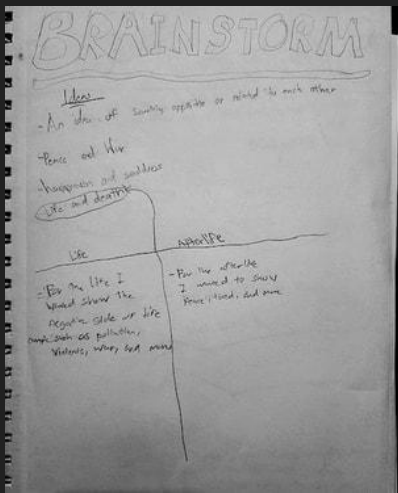 BRAINSTORM
Ideas
- An idea of something opposite or related to each other
- Peace and War
- happiness and saddness
Life and death
Life
Afterlife
- For the life I
wanted show the
negative side of life
such as pollution,
violence, war, and more
- For the afterlife
I wanted to show
Peace, and more